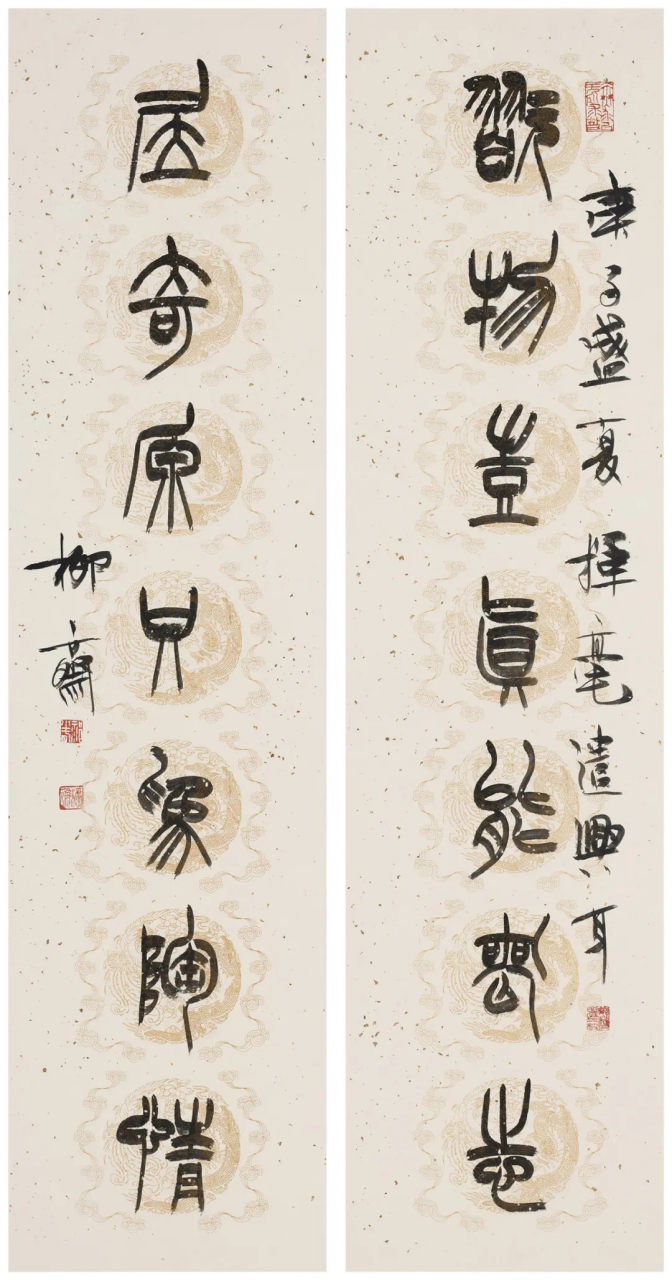 庚子盛夏揮毫遣興耳
翫物豈眞能喪志
居奇原只為陶情
柳齋